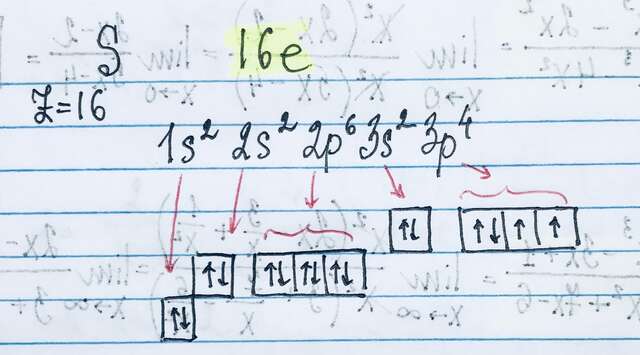 S 16e
Z=16
1s² 2s² 2p⁶ 3s² 3p⁴
↑↓ ↑ ↑ ↑↓
↑↓ ↑↓ ↑↓ ↑↓
↑↓